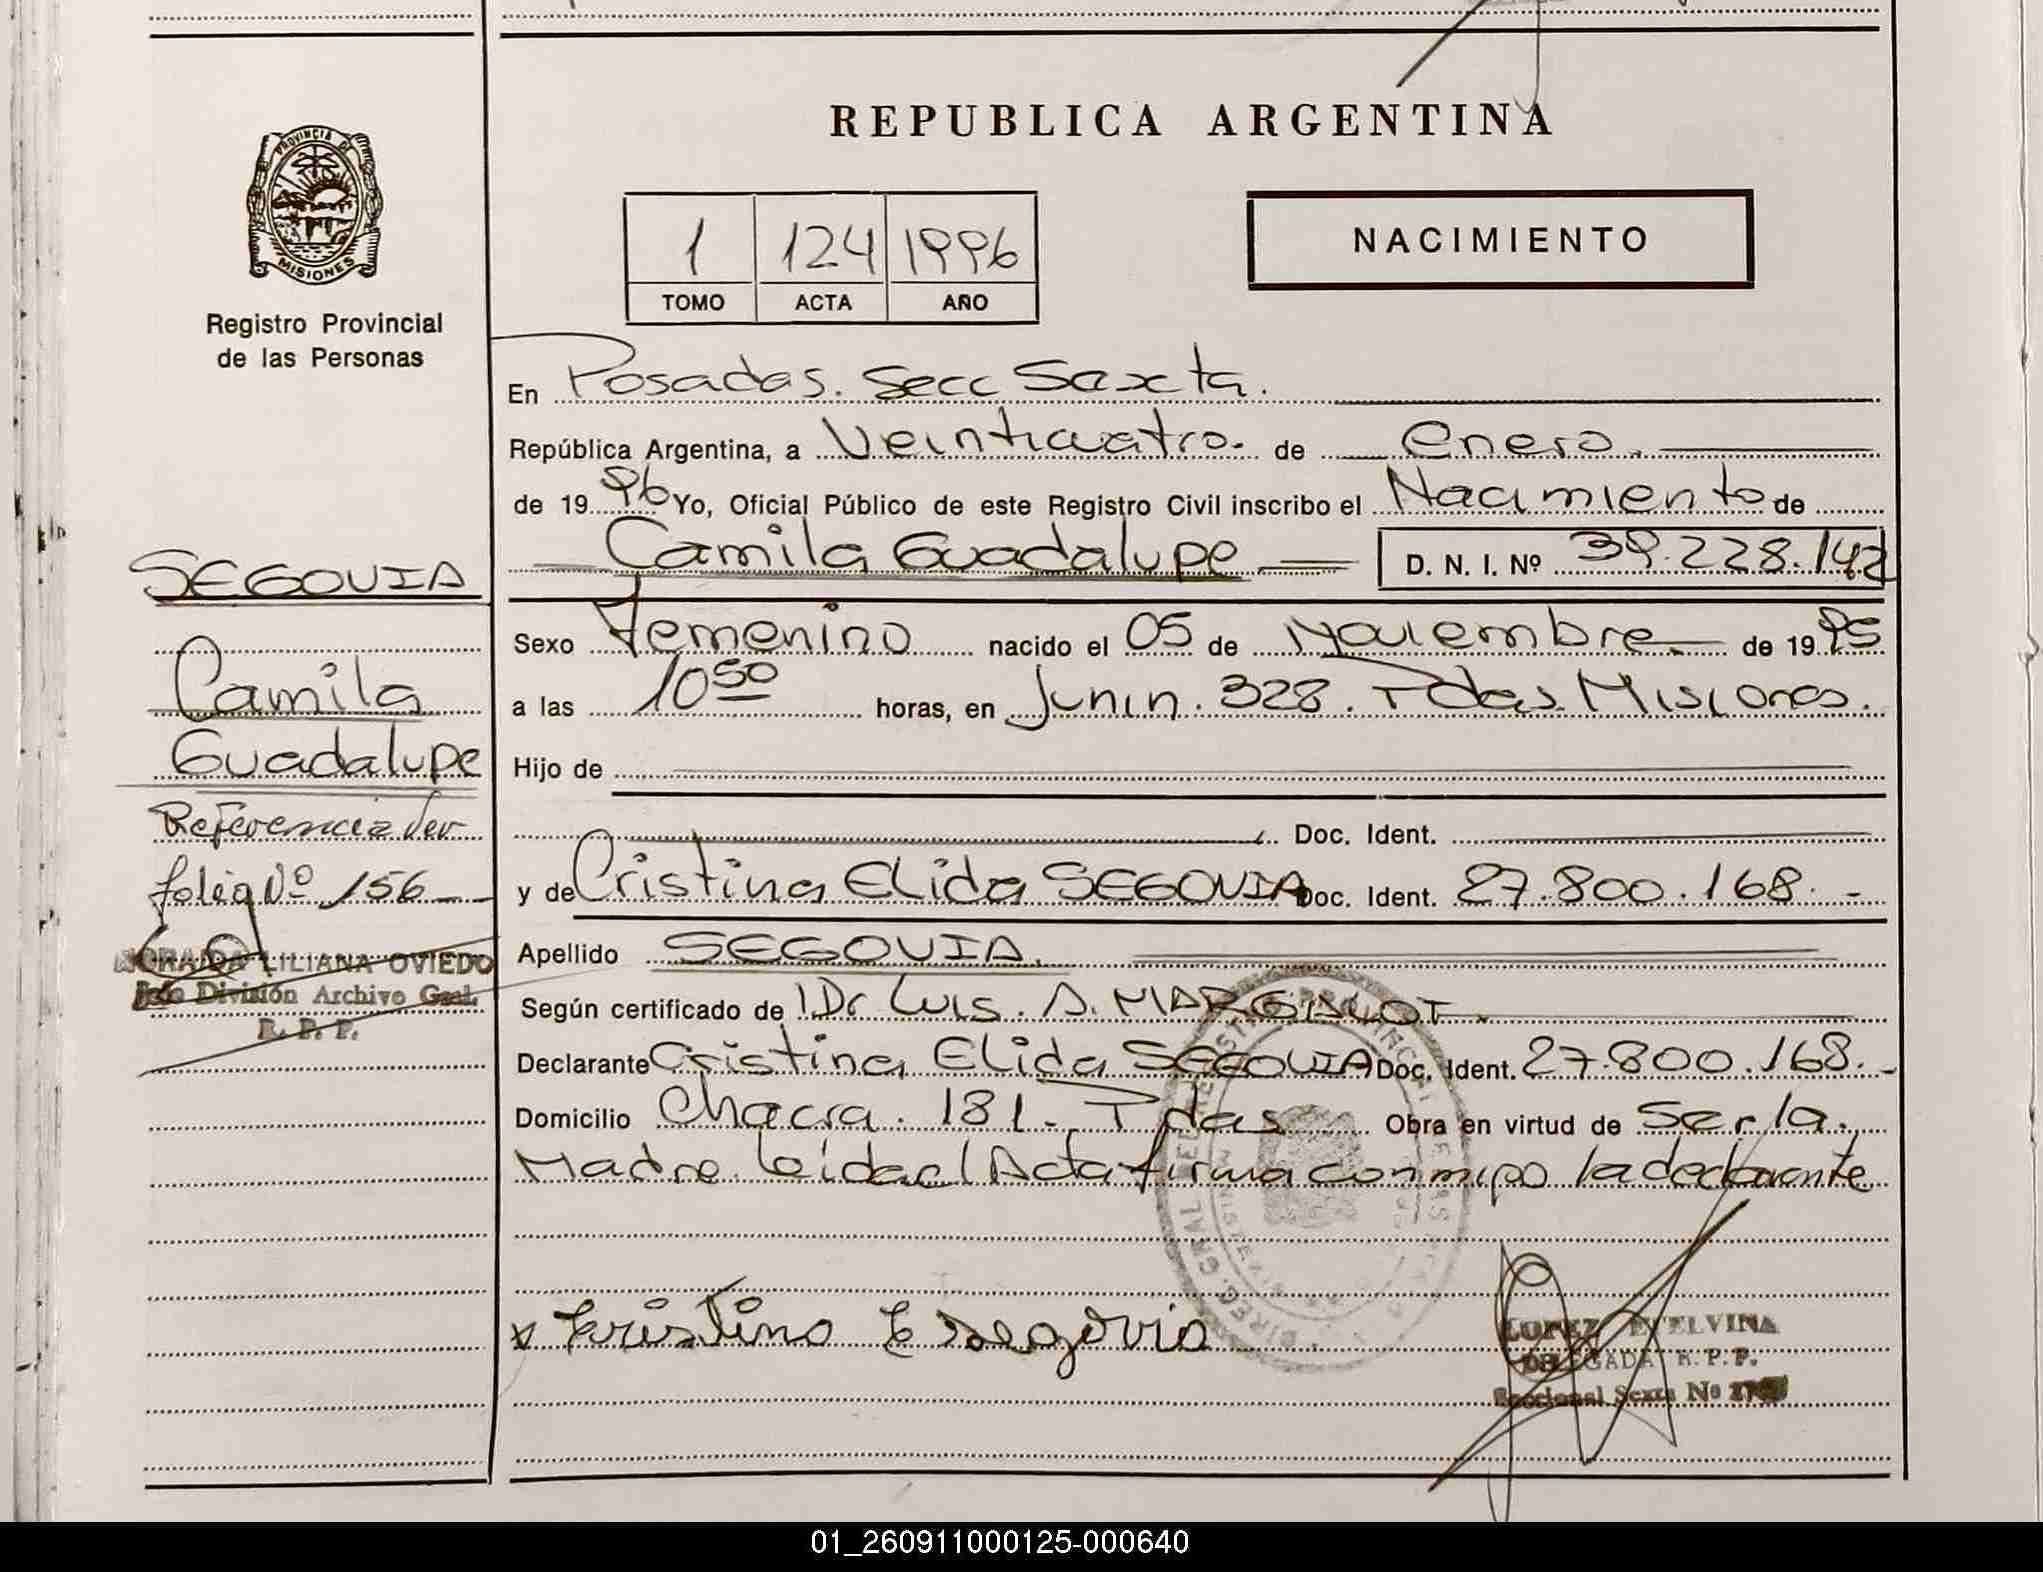 REPUBLICA ARGENTINA
PROVINCIA DE
MISIONES
Registro Provincial
de las Personas
1 124 1996
TOMO ACTA AÑO
NACIMIENTO
En Posadas. Secc Sexta.
República Argentina, a Veinticuatro. de Enero.
de 19 96 Yo, Oficial Público de este Registro Civil inscribo el Nacimiento de
Camila Guadalupe D. N. I. Nº 39.228.142
Sexo Femenino nacido el 05 de Noviembre. de 19 95
a las 10 50 horas, en Junin. 328. Pdas. Misiones.
Hijo de
Doc. Ident.
y de Cristina Elida SEGOVIA Doc. Ident. 27.800.168.-
Apellido SEGOVIA.
Según certificado de Dr Luis. A. MARGALOT.
Declarante Cristina Elida SEGOVIA Doc. Ident. 27.800.168.-
Domicilio Chacra. 181. Pdas Obra en virtud de Ser la.
Madre. leida el Acta firma conmigo la declarante
x Kristina E Segovia
LOPEZ ETELVINA
DELEGADA R.P.P.
Seccional Sexta Nº
SEGOVIA
Camila
Guadalupe
Referencia Ver
folio Nº 156
LILIANA OVIEDO
Jefe División Archivo Gral.
R. P. P.
01_260911000125-000640